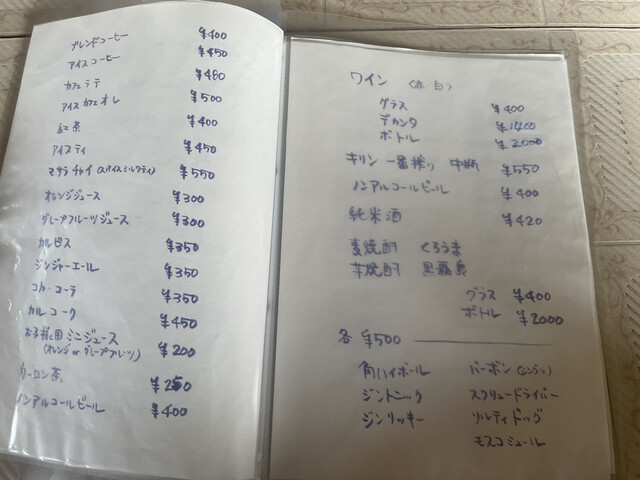 ブレンドコーヒー ¥400
アイスコーヒー ¥450
カフェラテ ¥480
アイスカフェオレ ¥500
紅茶 ¥400
アイスティ ¥450
マサラチャイ(スパイスミルクティ) ¥550
オレンジジュース ¥300
グレープフルーツジュース ¥300
カルピス ¥350
ジンジャーエール ¥350
コカ・コーラ ¥350
カルコーク ¥450
お子様用ミニジュース ¥200
(オレンジorグレープフルーツ)
ウーロン茶 ¥250
ノンアルコールビール ¥400
ワイン (赤・白)
グラス ¥400
デカンタ ¥1400
ボトル ¥2000
キリン一番搾り 中瓶 ¥550
ノンアルコールビール ¥400
純米酒 ¥420
麦焼酎 くろうま
芋焼酎 黒霧島
グラス ¥400
ボトル ¥2000
各 ¥500
角ハイボール バーボン
ジントニック スクリュードライバー
ジンリッキー ソルティドッグ
モスコミュール